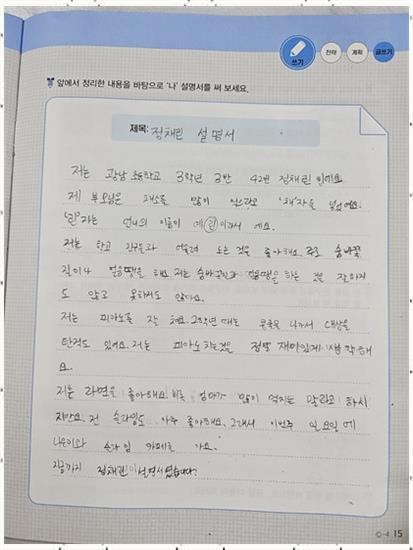 쓰기
전략
계획
글쓰기
앞에서 정리한 내용을 바탕으로 '나' 설명서를 써 보세요.
제목: 정채린 설명서
저는 광남초등학교 3학년 3반 42번 정채린이에요.
제 부모님은 채소를 많이 먹으라고 '채'자을 넣었어요.
'린'자는 언니의 이름이 예린이라서 예요.
저는 학교 친구들과 어울려 노는 것을 좋아해요. 주로 숨바꼭
질이나 얼음땡을 해요. 저는 숨바꼭질과 얼음땡을 하는 것을 잘하지
도 않고 못하지도 않아요.
저는 피아노를 잘 쳐요. 2학년 때는 콩쿨을 나가서 대상을
탄적도 있어요. 저는 피아노 치는것을 정말 재미있게 생각해
요.
저는 라면을 좋아해요. 비록 엄마가 많이 먹지는 말라고 하시
지만요. 전 슬라임도 아주 좋아해요. 그래서 이번주 일요일에
슬라임 카페를 가요.
지금까지 정채린 설명서였습니다.
C-4 15